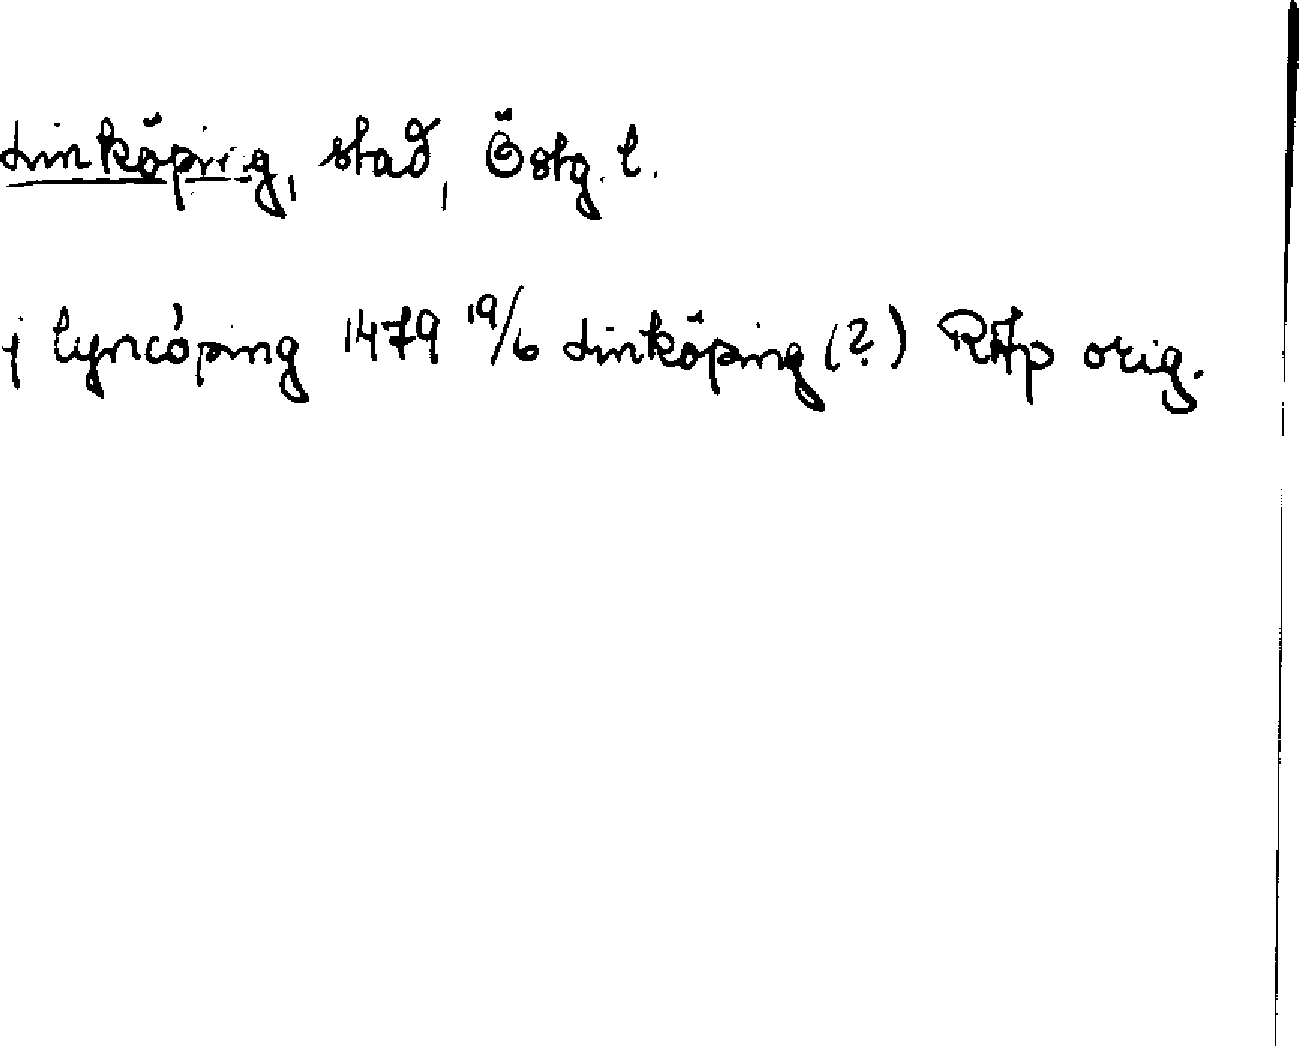 Linköping, stad, Östg. l.
j lyncóping 1479 19/6 Linköping (?) RAp orig.